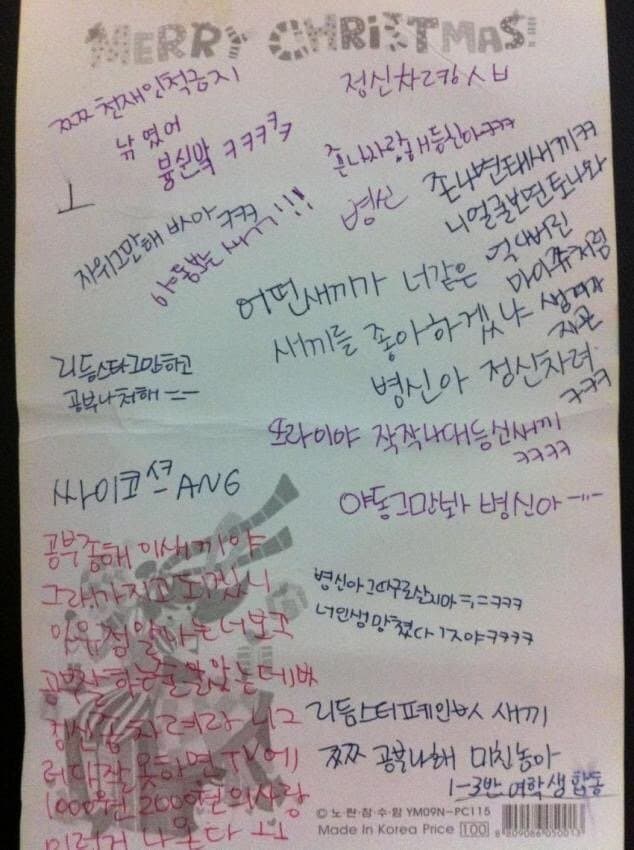 MERRY CHRISTMAS!
쯔쯔 천재인척금지
정신차려 ㅅㅂ
낚였어
븅신막 ㅋㅋㅋㅋ
존나사랑해 등신아ㅋㅋㅋ
병신
존나변태새끼ㅋㅋ
니얼굴보면토나와
자위그만해 ㅋㅋㅋ
야동보는 새끼!!!
어떤새끼가 너같은
마이쮸처럼
새끼를 좋아하겠냐
생겨가지곤
병신아 정신차려
ㅋㅋㅋ
리듬스타그만하고
공부나처해 ㅡㅡ
또라이야 작작나대등신새끼
ㅋㅋㅋㅋ
싸이코 ANG
야동그만봐 병신아 ㅡ.ㅡ
공부좀해 이새끼야
그래가지고 되겠니
너보고
공부잘하는줄알았는데
정신좀 차려라 니그
러다잘못하면 TV에
1000원 2000원의사랑
이런거 나온다 ㅜㅜ
병신아그따구로살지마 ㅋㅋㅋ
너인생망쳤다 ㅋㅋㅋㅋ
리듬스터페인 새끼
쯔쯔 공부나해 미친놈아
1-3반 여학생 합동
© 노·란·잠·수·함 YM09N-PC115
Made in Korea Price 100
8 809086 050013